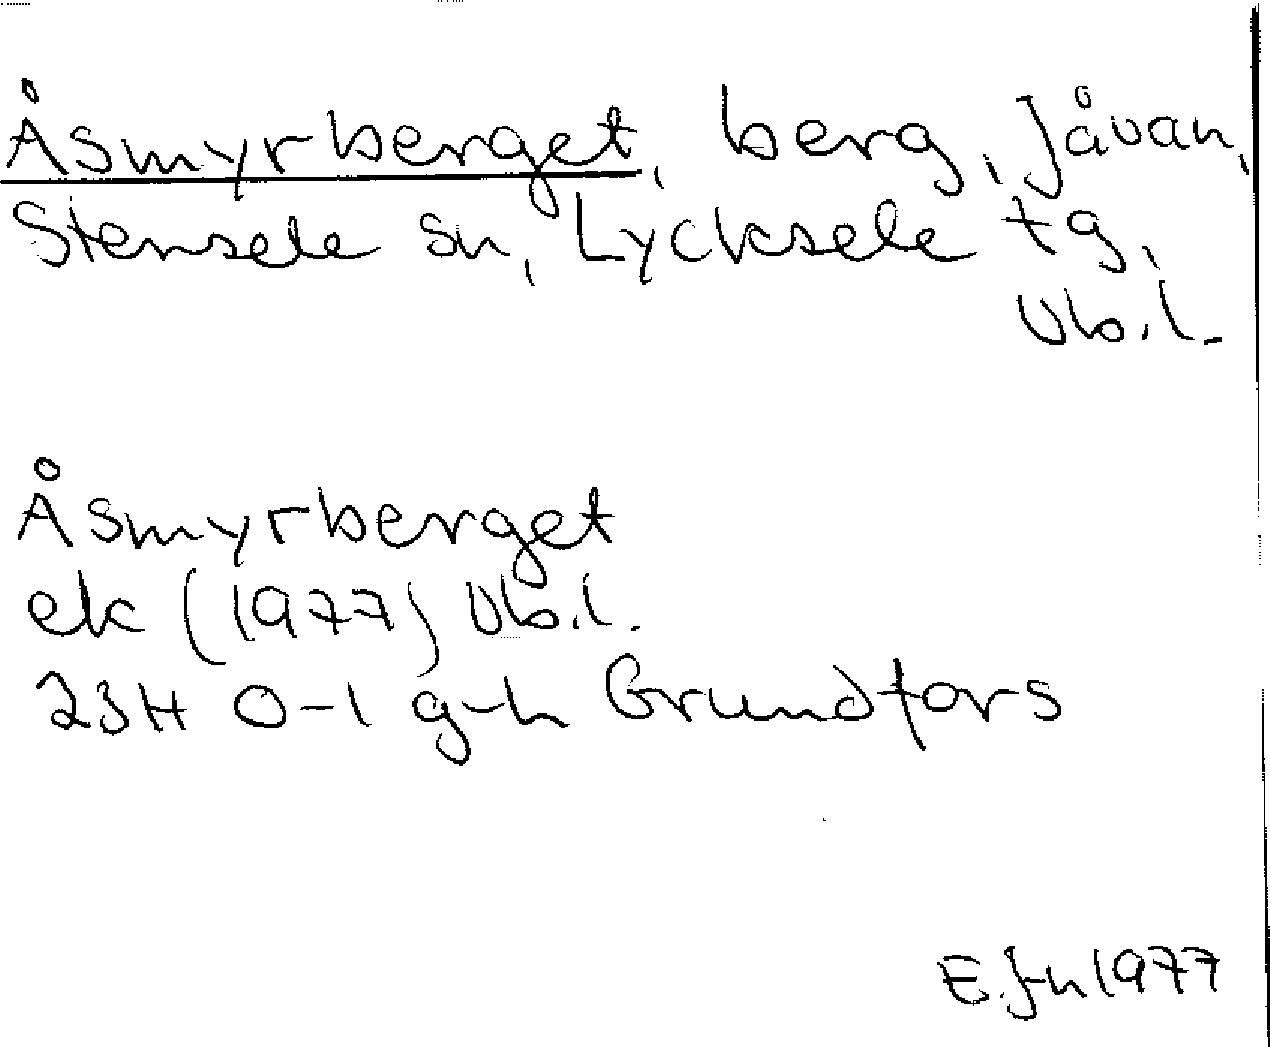 Åsmyrberget, berg, Jåvan,
Stensele sn, Lycksele tg,
Vb.l.
Åsmyrberget
ek (1977) Vb.l.
23H 0-1 g-h Grundfors
1977